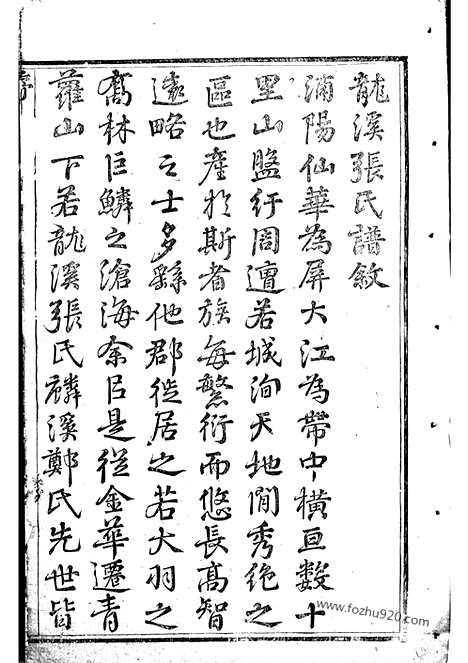 龍溪張氏譜敘
浦陽仙華為屏大江為帶中橫亘數十
里山盤紆周遭若城洵天地間秀絕之
區也產於斯者族每繁衍而悠長高智
遠略之士多繇他郡徙居之若大羽之
喬林巨鱗之滄海余曰是從金華遷青
蘿山下若龍溪張氏麟溪鄭氏先世皆
序
www.fozhu920.com